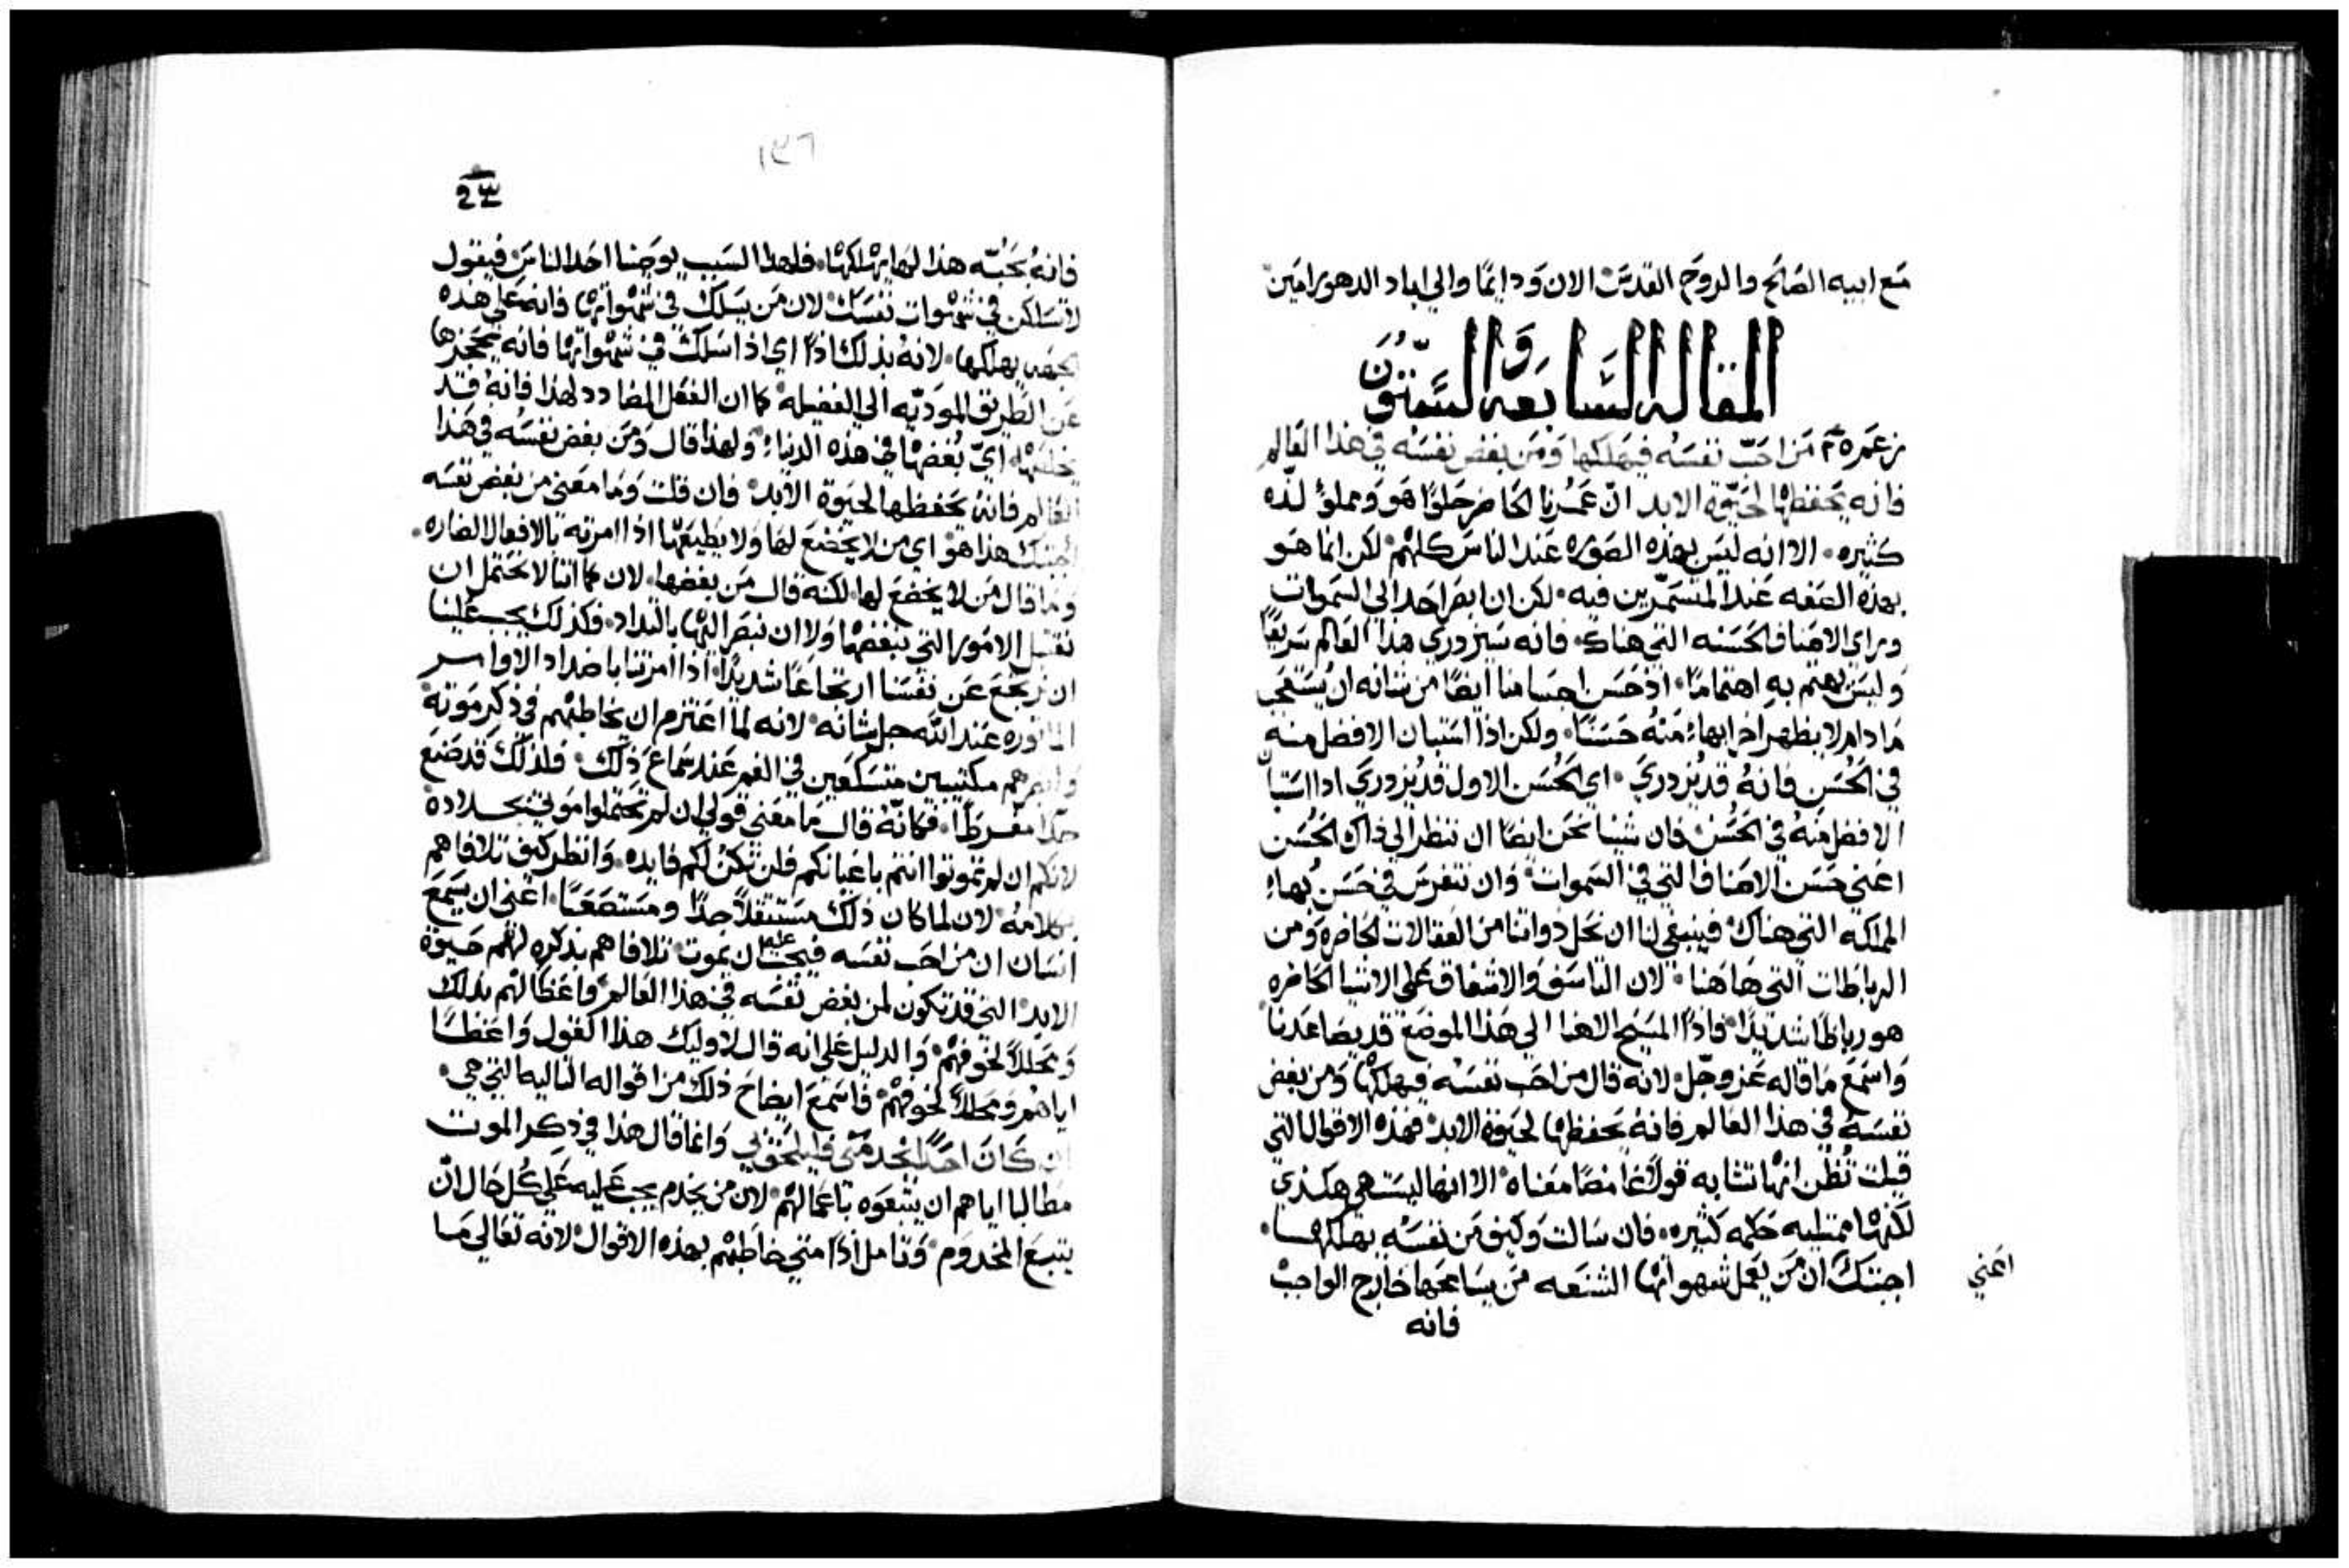 مَع ابيه الصَالح والروح القدسَ الان وَدايمًا والي اباد الدهور امَين
المقاله السَّابعَه وَالسَّتوُن
مَن احَبّ نفسَه فيهَلكها وَمَن بغض نفسَه في هذا العَالم
فانه يحَفظهْا لحَيَوة الابد انّ عمَرنا الحَاضر حَلوًا هَو وَمملوًا لذه
كثيره الا انه ليَس بهذه الصَوره عَند الناسَ كلهْم لكن انما هَو
بهذه الصَفه عَند المتسَمّرين فيه لكن ان ابصَر احَد الي السَموات
وراي الاصَناف الحَسَنه التي هناك فانه سَيزدري هذا العَالم سَريعًا
وَليسَ يهتم به اهتمامًا اذ حَسَن اجسَامنا ايضًا من شانه ان يُستعَجب
مَا دام لا يظهر اخر ابهاء مَنهُ حَسَنًا ولكن اذا اسَتبان الافضل منه
في الحُسَن فانهُ قد يُزدري اي الحُسَن الاول قد يزدري اذا اسَتبا
الافضل مَنهُ في الحَسُن فان شينا نحَن ايضًا ان ننظر الي ذاك الحُسَن
اعَني حَسَن الاصَناف التي في السَموات وَان نتفرسَ في حَسَن بُهاء
المملكه التي هناك فينبغي لنا ان نحَل ذواتنا من العَقالات الحَاضره وَمن
الرباطات التي هَاهَنا لان التاسَف وَالاشفاق عَلي الاشيا الحَاضره
هو رباطًا شديدًا فاذًا المسَيح الاهنا الي هَذا الموضَع قد يصَاعَدنا
وَاسَمَع مَا قاله عَز وجَل لانه قال من احَب نفسَه فيهلكهْا وَمن بغض
نفسَه في هذا العَالم فانهُ يحَفظهْا لحَيوة الابد فهَذه الاقوال التي
قيلت تُظن انهْا تشابه قولاً غامضًا مَعناه الا انها ليسَت هي هكذي
لكنهْا ممتليه حَكمه كثيره فان سَالت وَكيف مَن نفسَه يهلكها
اعَني
اجبتك ان مَن يعَمل شهواتهْا الشنعَه مَن يسَامحَها خارج الواجب
فانه
١٣٦
فانهُ بحَبّه هذا لهَا يهْلكهْا فلهذا السَبب يوصَنا احَد الناسَ فيقول
لا تسَلكن في شهْوات نفسَك لان مَن يسَلك في شهْواتهْا فانه عَلي هذه
يهلكها لانهُ بذلك اذًا اي اذا سَلك في شهْواتهْا فانه يحَجزها
عَن الطريق المودّيه الي الفضيله كما ان الفعَل المضادد لهذا فانهُ قد
اي بُغضهْا في هذه الدنيا ولهذا قال وَمَن بغض نفسَه في هَذا
العَالم فانهُ يحَفظها لحَيوة الابد فان قلت وَمَا مَعَني من بُغض نفسَه
اجبتك هذا هوْ اي من لا يخضَع لهَا وَلا يطيعَهْا اذا امرته بالافعال الضاره
وَمَا قال مَن لا يخضَع لها لكنه قال مَن بغضها لان كما اننا لا نحَتمل ان
نقبل الامَور التي نبغضهْا وَلا ان نبصَر اليهْا بالبداد فكذلك يجب عَلينا
ان نرجَع عَن نفسَنا ارتجاعًا شديدًا اذا امرتنا باضداد الاوامر
الماثوره عَند الله جل شانه لانه لما اعتزم ان يخاطبهْم في ذكر مَوته
وَابصرهم مكتيبين متسَكعَين في الغم عَند سَماع ذلك فلذلك قد ضَع
جدًا مفرطًا فكانّه قال مَا معَني قولي ان لم تحَتملوا مَوتي بجلاده
لانكم ان لم تموتوا انتم باعَيانكم فلن تكن لكم فايده وَانظر كيف تلافاهم
بكلامهُ لان لما كان ذلك مسَتثقلاً جدًا ومَسَتصَعبًا اعَني ان يسَمَع
انسَان ان من احَب نفسَه فيجب عليه ان يموت تلافاهم بذكره لهْم حَيوة
الابد التي قد تكون لمن بغض نفسَه في هذا العَالم وَاعَظًا لهْم بذلك
وَمحَللاً لخوفهْم وَالدليل عَلي انه قال لاوليك هذا القول وَاعَظًا
اياهم وَمحَللاً لخوفهْم فاسَمَع ايضاحَ ذلك من اقواله التاليه التي هي
ان كَان احَدًا يخدمَني فليلحَق بي وَانما قال هذا في ذكر الموت
مَطالبا اياهم ان يتبعَوه باعَمالهْم لان من يخدم يجب عَليه عَلي كُل حَال ان
يتبعَ المخدوَم وَتامل اذًا متي خاطبهْم بهذه الاقوال لانه تعَالي مَا